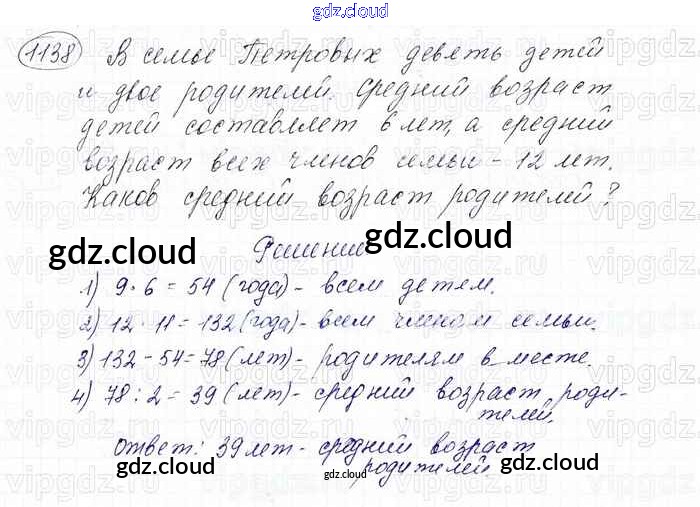 gdz.cloud
1138 В семье Петровых девять детей
и двое родителей. Средний возраст
детей составляет 6 лет, а средний
возраст всех членов семьи - 12 лет.
Каков средний возраст родителей?
gdz.cloud gdz.cloud
Решение
1) 9·6 = 54 (года) - всем детям.
2) 12·11 = 132 (года) - всем членам семьи.
3) 132 - 54 = 78 (лет) - родителям в месте.
4) 78 : 2 = 39 (лет) - средний возраст роди-
телей.
Ответ: 39 лет - средний возраст
родителей.
gdz.cloud gdz.cloud